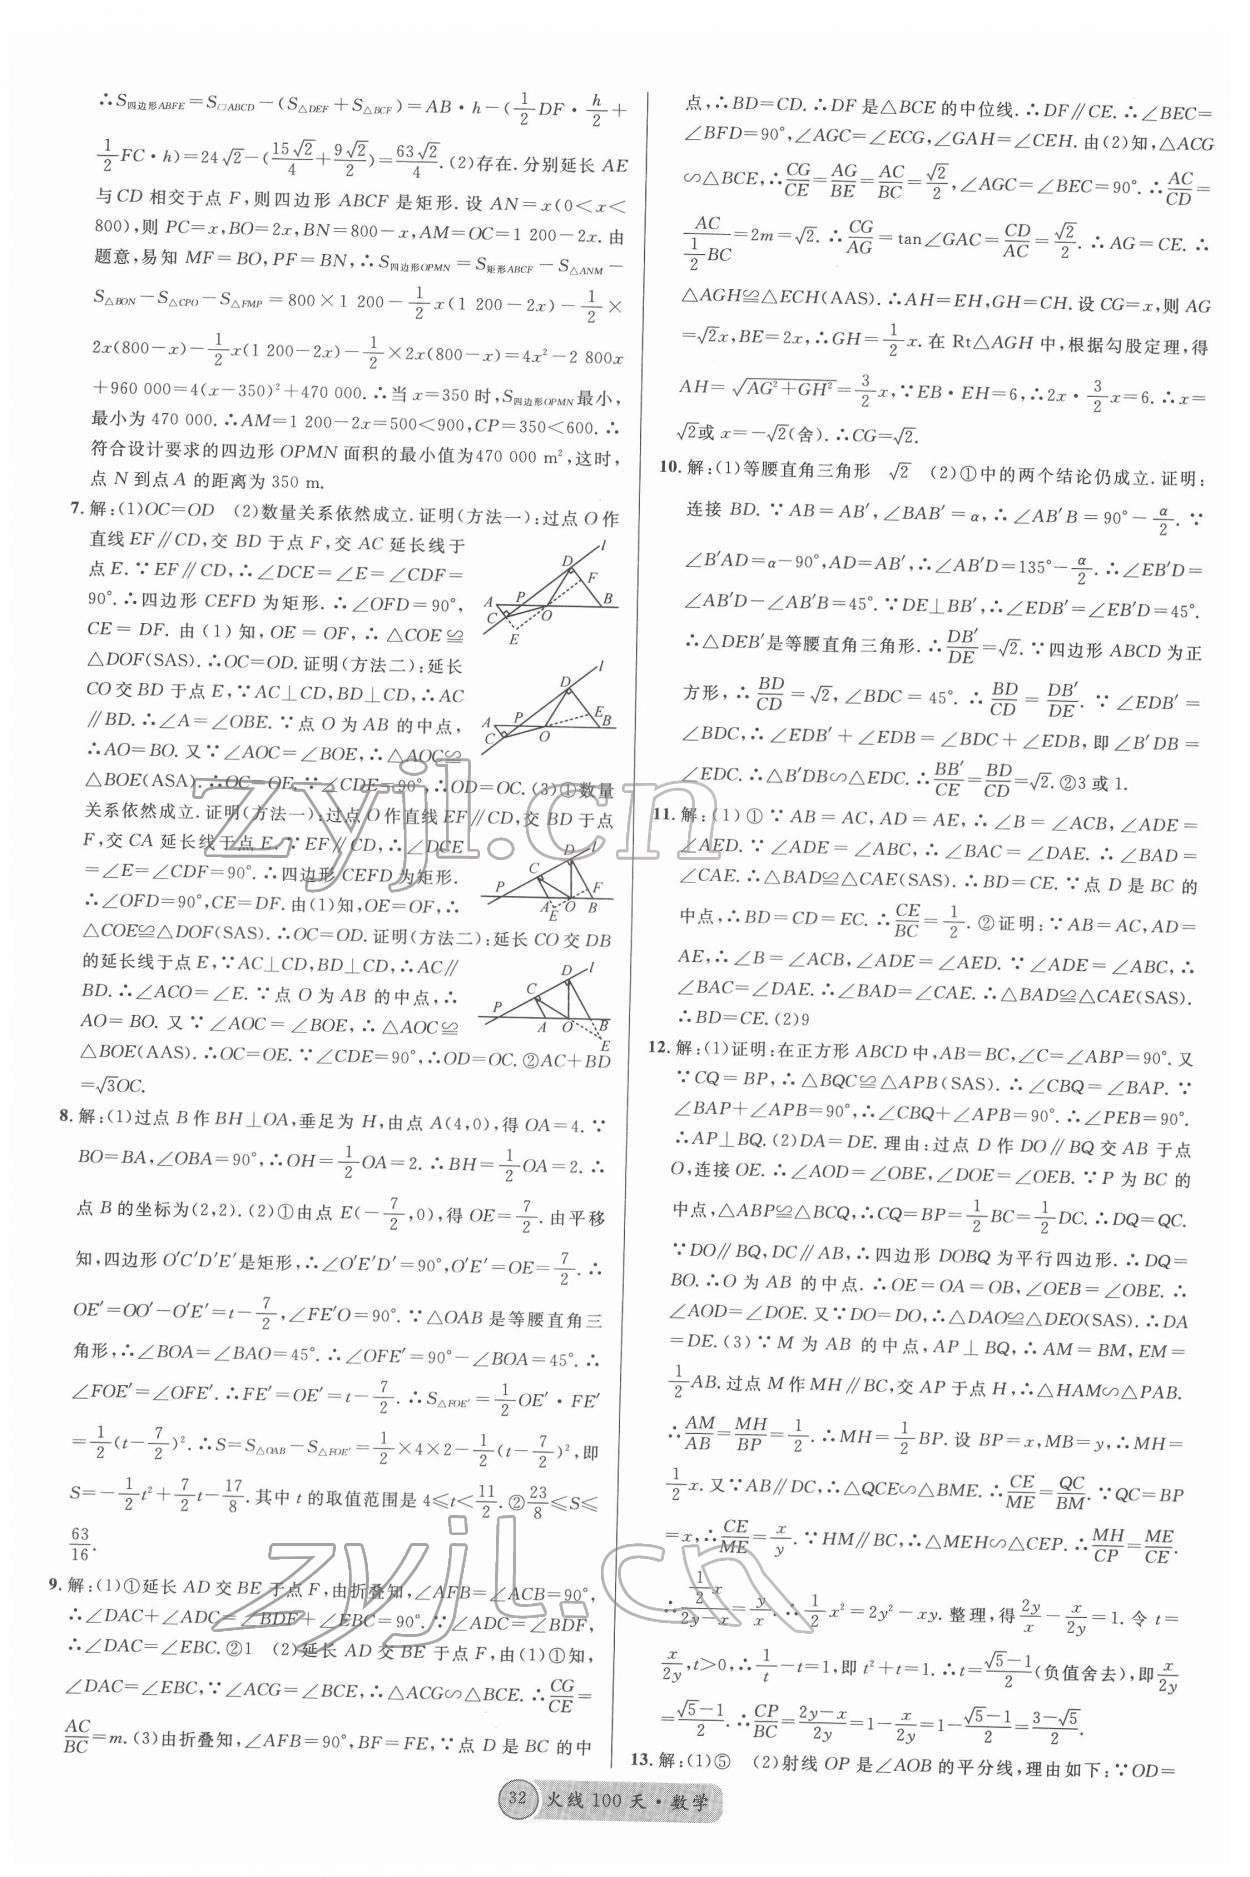 ∴S四边形ABFE=S□ABCD-(S△DEF+S△BCF)=AB·h-(1/2DF·h/2+
1/2FC·h)=24√2-(15√2/4+9√2/2)=63√2/4.(2)存在.分别延长 AE
与CD 相交于点 F,则四边形 ABCF 是矩形.设 AN=x(0<x<
800),则 PC=x,BO=2x,BN=800-x,AM=OC=1 200-2x.由
题意,易知 MF=BO,PF=BN,∴S四边形OPMN=S矩形ABCF-S△ANM-
S△BON-S△CPO-S△FMP=800×1 200-1/2x(1 200-2x)-1/2×
2x(800-x)-1/2x(1 200-2x)-1/2×2x(800-x)=4x²-2 800x
+960 000=4(x-350)²+470 000.∴当 x=350 时,S四边形OPMN最小,
最小为 470 000.∴AM=1 200-2x=500<900,CP=350<600.∴
符合设计要求的四边形 OPMN 面积的最小值为470 000 m²,这时,
点 N 到点 A 的距离为 350 m.
7.解:(1)OC=OD (2)数量关系依然成立.证明(方法一):过点 O 作
直线 EF∥CD,交 BD 于点 F,交 AC 延长线于
点 E.∵EF∥CD,∴∠DCE=∠E=∠CDF=
90°.∴四边形 CEFD 为矩形.∴∠OFD=90°,
CE=DF.由(1)知,OE=OF,∴△COE≌
△DOF(SAS).∴OC=OD.证明(方法二):延长
CO 交 BD 于点 E,∵AC⊥CD,BD⊥CD,∴AC
∥BD.∴∠A=∠OBE.∵点 O 为 AB 的中点,
∴AO=BO.又∵∠AOC=∠BOE,∴△AOC≌
△BOE(ASA).∴OC=OE.∵∠CDE=90°,∴OD=OC.(3)①数量
关系依然成立.证明(方法一):过点 O 作直线 EF∥CD,交 BD 于点
F,交 CA 延长线于点 E.∵EF∥CD,∴∠DCE
=∠E=∠CDF=90°.∴四边形 CEFD 为矩形.
∴∠OFD=90°,CE=DF.由(1)知,OE=OF,∴
△COE≌△DOF(SAS).∴OC=OD.证明(方法二):延长 CO 交 DB
的延长线于点 E,∵AC⊥CD,BD⊥CD,∴AC∥
BD.∴∠ACO=∠E.∵点 O 为 AB 的中点,∴
AO=BO.又∵∠AOC=∠BOE,∴△AOC≌
△BOE(AAS).∴OC=OE.∵∠CDE=90°,∴OD=OC.②AC+BD
=√3OC.
8.解:(1)过点 B 作 BH⊥OA,垂足为 H,由点 A(4,0),得 OA=4.∵
BO=BA,∠OBA=90°,∴OH=1/2OA=2.∴BH=1/2OA=2.∴
点 B 的坐标为(2,2).(2)①由点 E(-7/2,0),得 OE=7/2.由平移
知,四边形 O′C′D′E′是矩形,∴∠O′E′D′=90°,O′E′=OE=7/2.∴
OE′=OO′-O′E′=t-7/2,∠FE′O=90°.∵△OAB 是等腰直角三
角形,∴∠BOA=∠BAO=45°.∴∠OFE′=90°-∠BOA=45°.∴
∠FOE′=∠OFE′.∴FE′=OE′=t-7/2.∴S△FOE′=1/2OE′·FE′
=1/2(t-7/2)².∴S=S△OAB-S△FOE′=1/2×4×2-1/2(t-7/2)²,即
S=-1/2t²+7/2t-17/8.其中 t 的取值范围是 4≤t<11/2.②23/8≤S≤
63/16.
9.解:(1)①延长 AD 交 BE 于点 F,由折叠知,∠AFB=∠ACB=90°,
∴∠DAC+∠ADC=∠BDF+∠EBC=90°.∵∠ADC=∠BDF,
∴∠DAC=∠EBC.②1 (2)延长 AD 交 BE 于点 F,由(1)①知,
∠DAC=∠EBC,∵∠ACG=∠BCE,∴△ACG∽△BCE.∴CG/CE=
AC/BC=m.(3)由折叠知,∠AFB=90°,BF=FE,∵点 D 是 BC 的中
点,∴BD=CD.∴DF 是△BCE 的中位线.∴DF∥CE.∴∠BEC=
∠BFD=90°,∠AGC=∠ECG,∠GAH=∠CEH.由(2)知,△ACG
∽△BCE,∴CG/CE=AG/BE=AC/BC=√2/2,∠AGC=∠BEC=90°.∴AC/CD=
AC/(1/2BC)=2m=√2.∴CG/AG=tan∠GAC=CD/AC=√2/2.∴AG=CE.∴
△AGH≌△ECH(AAS).∴AH=EH,GH=CH.设 CG=x,则 AG
=√2x,BE=2x,∴GH=1/2x.在 Rt△AGH 中,根据勾股定理,得
AH=√(AG²+GH²)=3/2x,∵EB·EH=6,∴2x·3/2x=6.∴x=
√2或 x=-√2(舍).∴CG=√2.
10.解:(1)等腰直角三角形 √2 (2)①中的两个结论仍成立.证明:
连接 BD.∵AB=AB′,∠BAB′=α,∴∠AB′B=90°-α/2.∵
∠B′AD=α-90°,AD=AB′,∴∠AB′D=135°-α/2.∴∠EB′D=
∠AB′D-∠AB′B=45°.∵DE⊥BB′,∴∠EDB′=∠EB′D=45°.
∴△DEB′是等腰直角三角形.∴DB′/DE=√2.∵四边形 ABCD 为正
方形,∴BD/CD=√2,∠BDC=45°.∴BD/CD=DB′/DE.∵∠EDB′=
∠BDC,∴∠EDB′+∠EDB=∠BDC+∠EDB,即∠B′DB=
∠EDC.∴△B′DB∽△EDC.∴BB′/CE=BD/CD=√2.②3 或 1.
11.解:(1)①∵AB=AC,AD=AE,∴∠B=∠ACB,∠ADE=
∠AED.∵∠ADE=∠ABC,∴∠BAC=∠DAE.∴∠BAD=
∠CAE.∴△BAD≌△CAE(SAS).∴BD=CE.∵点 D 是 BC 的
中点,∴BD=CD=EC.∴CE/BC=1/2.②证明:∵AB=AC,AD=
AE,∴∠B=∠ACB,∠ADE=∠AED.∵∠ADE=∠ABC,∴
∠BAC=∠DAE.∴∠BAD=∠CAE.∴△BAD≌△CAE(SAS).
∴BD=CE.(2)9
12.解:(1)证明:在正方形 ABCD 中,AB=BC,∠C=∠ABP=90°.又
∵CQ=BP,∴△BQC≌△APB(SAS).∴∠CBQ=∠BAP.∵
∠BAP+∠APB=90°,∴∠CBQ+∠APB=90°.∴∠PEB=90°.
∴AP⊥BQ.(2)DA=DE.理由:过点 D 作 DO∥BQ 交 AB 于点
O,连接 OE.∴∠AOD=∠OBE,∠DOE=∠OEB.∵P 为 BC 的
中点,△ABP≌△BCQ,∴CQ=BP=1/2BC=1/2DC.∴DQ=QC.
∵DO∥BQ,DC∥AB,∴四边形 DOBQ 为平行四边形.∴DQ=
BO.∴O 为 AB 的中点.∴OE=OA=OB,∠OEB=∠OBE.∴
∠AOD=∠DOE.又∵DO=DO,∴△DAO≌△DEO(SAS).∴DA
=DE.(3)∵M 为 AB 的中点,AP⊥BQ,∴AM=BM,EM=
1/2AB.过点 M 作 MH∥BC,交 AP 于点 H,∴△HAM∽△PAB.
∴AM/AB=MH/BP=1/2.∴MH=1/2BP.设 BP=x,MB=y,∴MH=
1/2x.又∵AB∥DC,∴△QCE∽△BME.∴CE/ME=QC/BM.∵QC=BP
=x,∴CE/ME=x/y.∵HM∥BC,∴△MEH∽△CEP.∴MH/CP=ME/CE.
∴(1/2x)/(2y-x)=y/x.∴1/2x²=2y²-xy.整理,得2y/x-x/2y=1.令 t=
x/2y,t>0,∴1/t-t=1,即 t²+t=1.∴t=(√5-1)/2(负值舍去),即x/2y
=(√5-1)/2.∴CP/BC=(2y-x)/2y=1-x/2y=1-(√5-1)/2=(3-√5)/2.
13.解:(1)⑤ (2)射线 OP 是∠AOB 的平分线,理由如下:∵OD=
32 火线 100 天·数学
zyjl.cn
zyjl.cn